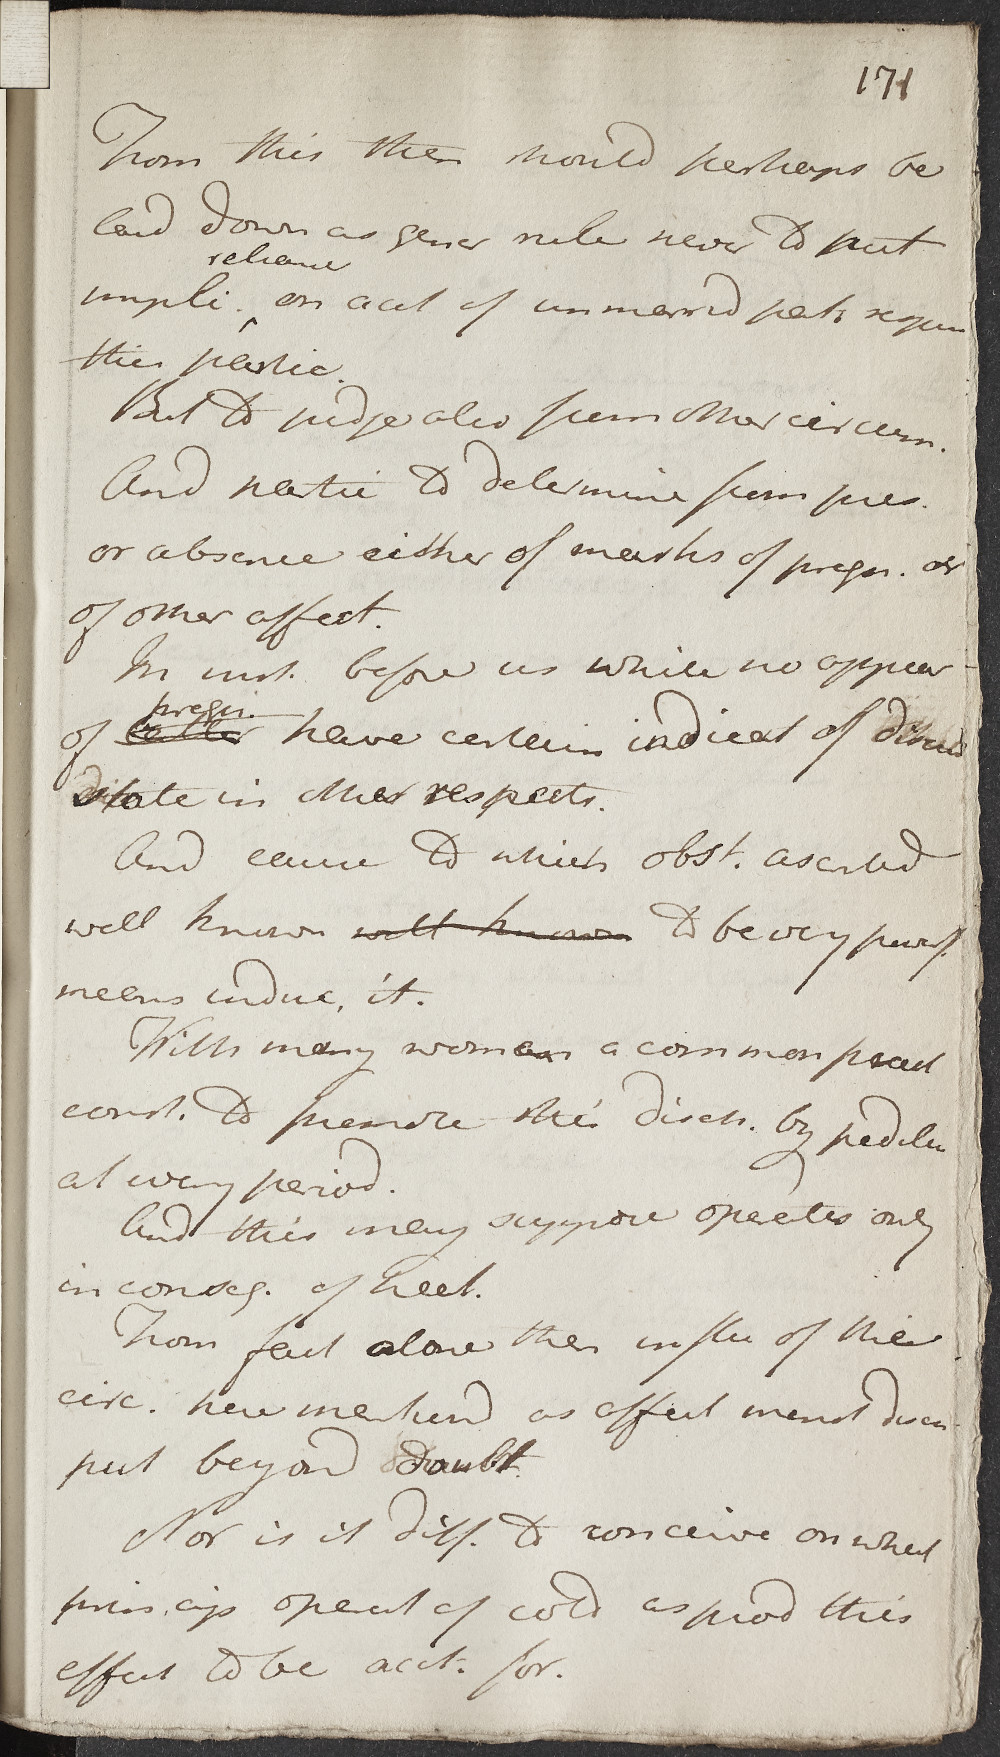 171
From this then should perhaps be
laid down as gener rule never to put
reliance
impli. on acct of unmarried pat. respec
this partic.
But to judge also from other circum.
And partic to determine from pres.
or absence either of marks of pregn. or
of other affect.
In inst. before us while no appear
pregn.
of have certain indicat of diseas
state in other respects.
And cause to which obst. ascribed
well known well known to be very powrf.
means induc. it.
With many women a common pract
const. to promote this disch. by pedilu
at every period.
And this may suppose operates only
in conseq. of heat.
From fact alone then influ of this
circ. here mentiond as affect menst disch
put beyond doubt.
Nor is it diff. to conceive on what
princip operat of cold as prod this
effect to be acct. for.